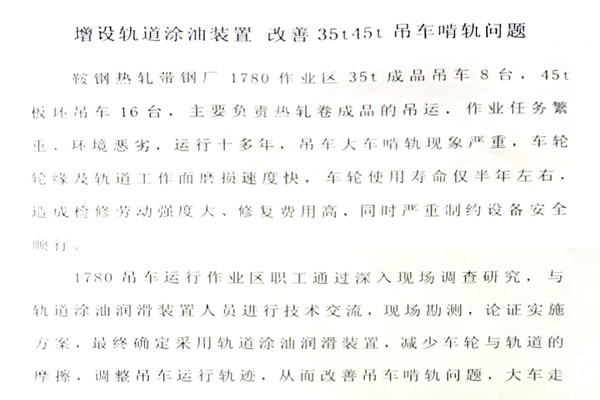 增设轨道涂油装置 改善35t45t吊车啃轨问题
鞍钢热轧带钢厂1780作业区35t成品吊车8台，45t
板坯吊车16台，主要负责热轧卷成品的吊运，作业任务繁
重、环境恶劣，运行十多年，吊车大车啃轨现象严重，车轮
轮缘及轨道工作面磨损速度快，车轮使用寿命仅半年左右，
造成检修劳动强度大、修复费用高，同时严重制约设备安全
顺行。
1780吊车运行作业区职工通过深入现场调查研究，与
轨道涂油润滑装置人员进行技术交流，现场勘测，论证实施
方案，最终确定采用轨道涂油润滑装置，减少车轮与轨道的
摩擦，调整吊车运行轨迹，从而改善吊车啃轨问题，大车走